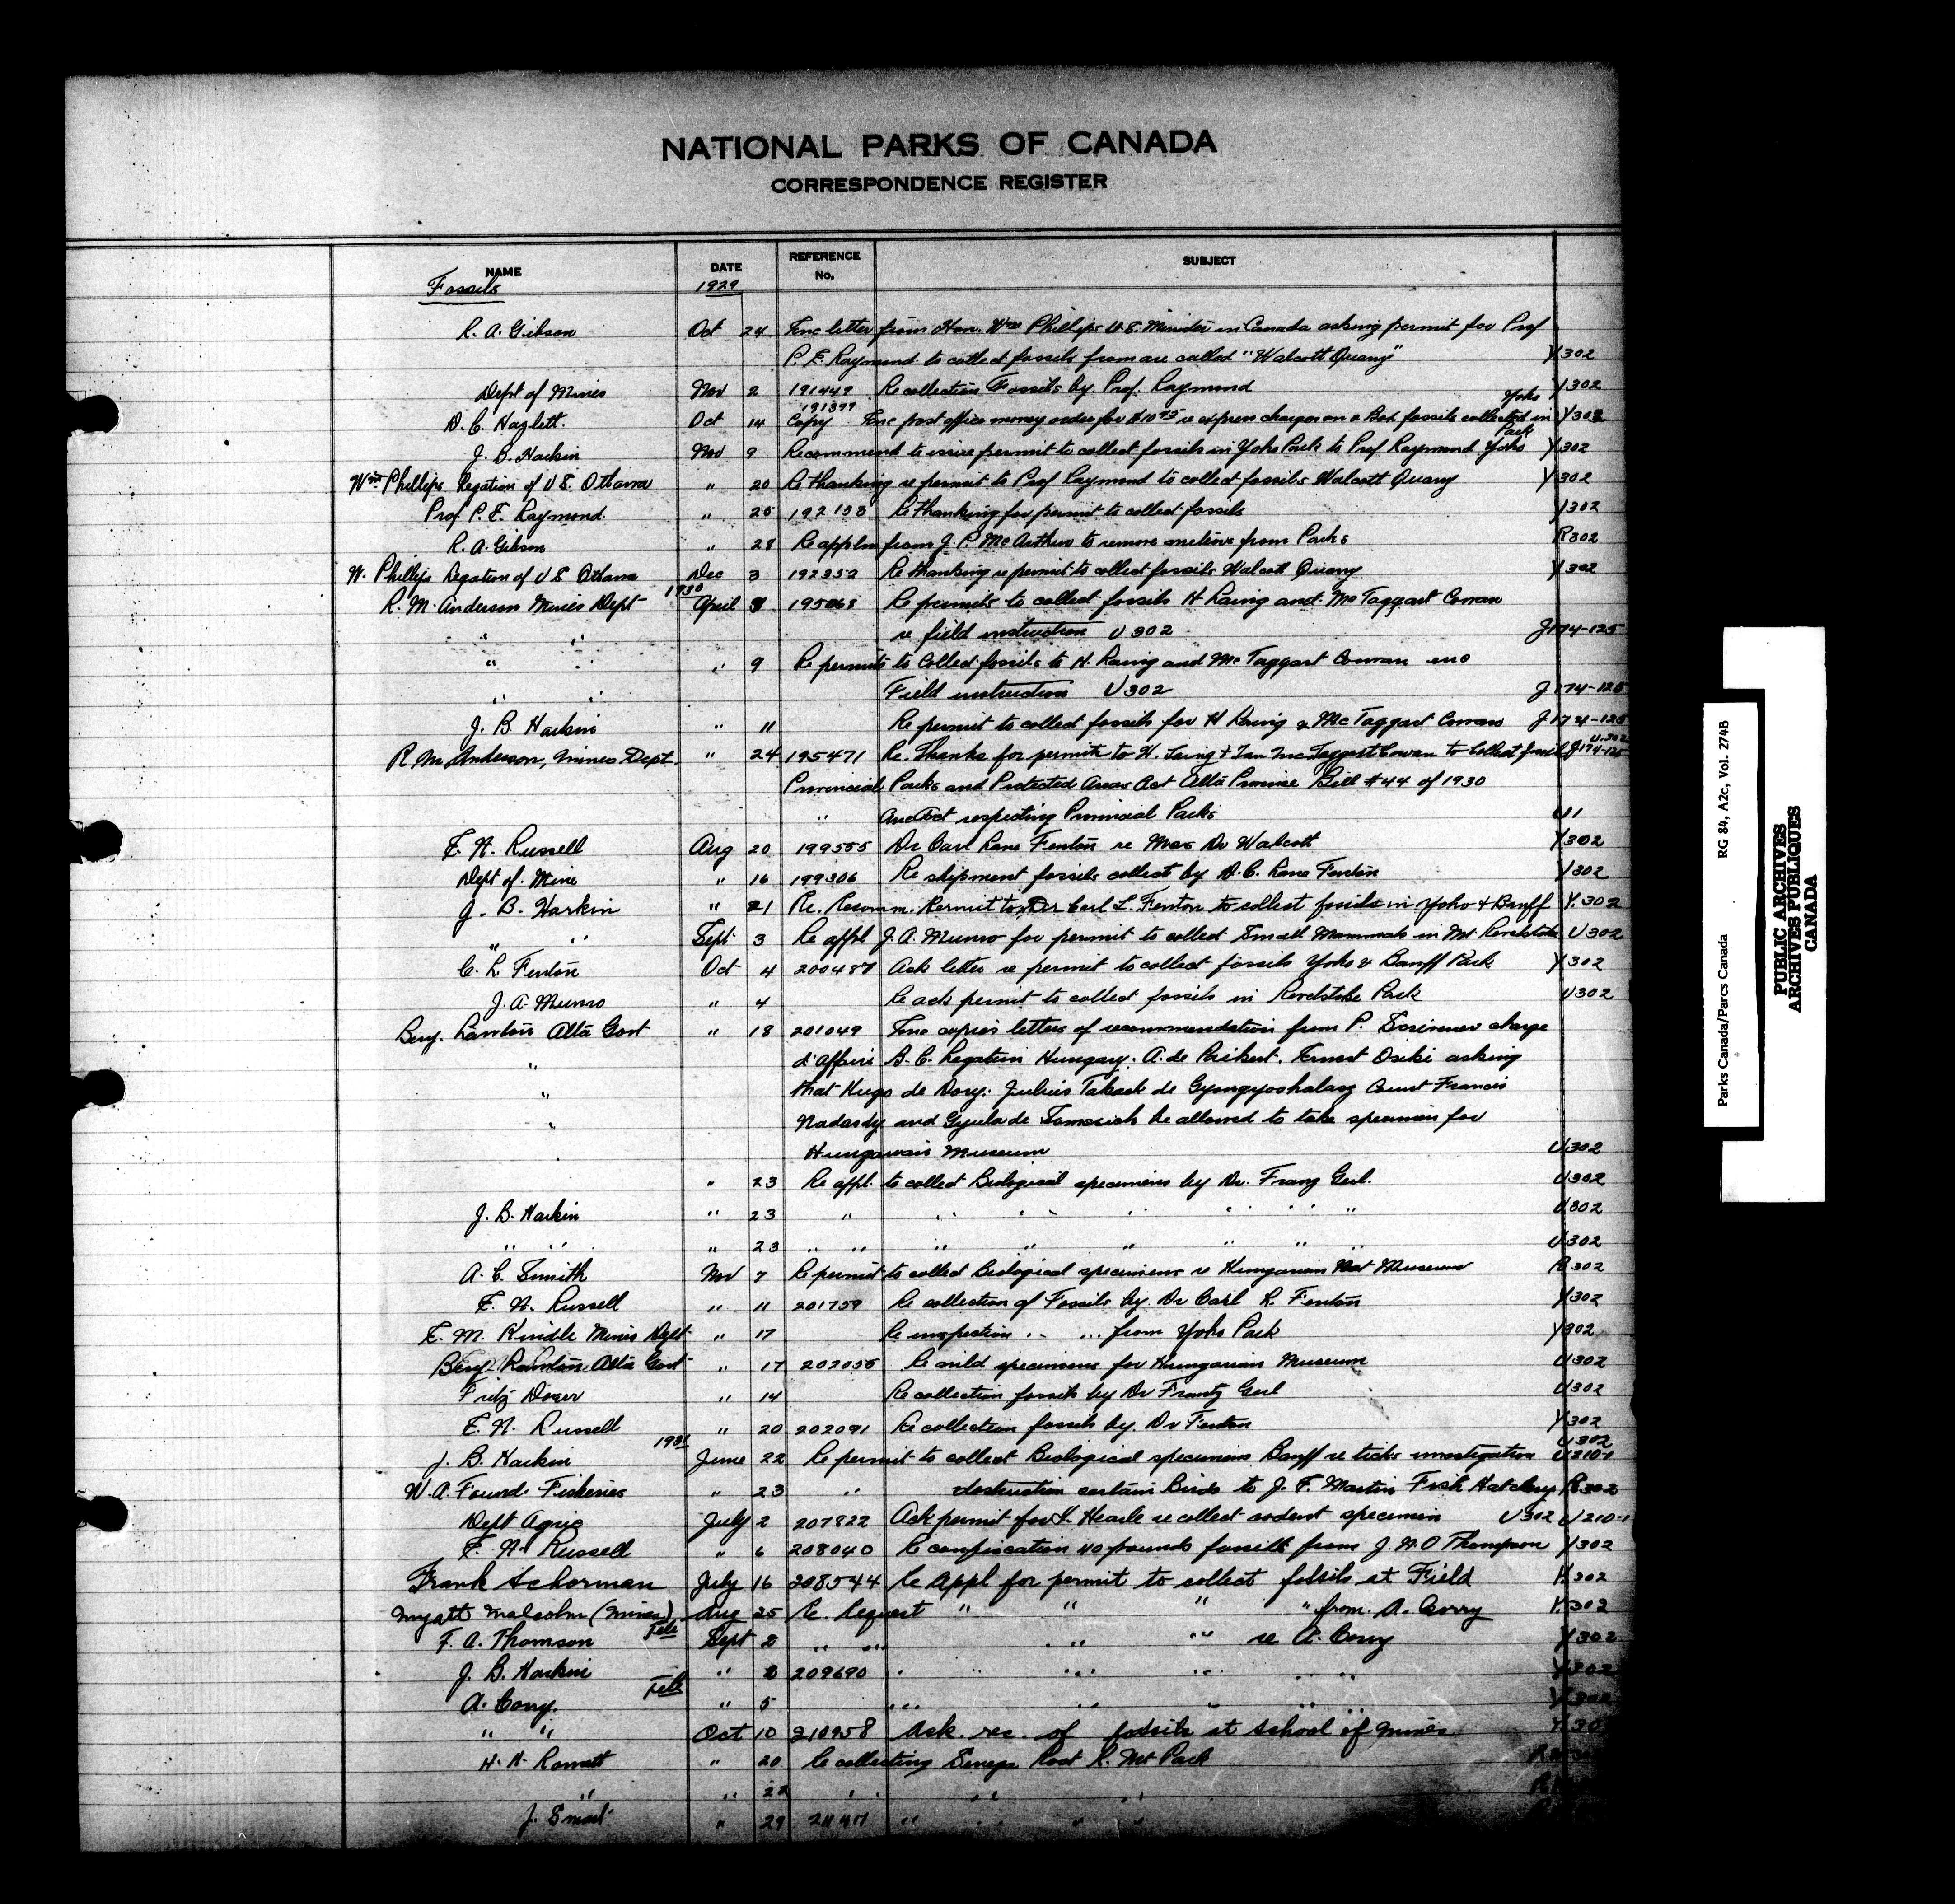 NATIONAL PARKS OF CANADA
CORRESPONDENCE REGISTER
NAME DATE REFERENCE No. SUBJECT
Fossils 1929
R. A. Gibson Oct 24 Enc letter from Hon. Wm Phillips U.S. Minister in Canada asking permit for Prof
P. E. Raymond to collect fossils from are called "Walcott Quarry" Y302
Dept of Mines Nov 2 191449 Re collection Fossils by Prof. Raymond Y302
D. C. Hazlett. Oct 14 191397 Copy Enc post office money order for $10.95 re express charges on 2 Box fossils collected in Yoho Park Y302
J. B. Harkin Nov 9 Recommend to issue permit to collect fossils in Yoho Park to Prof Raymond Yoho Y302
Wm Phillips Legation of U S. Ottawa " 20 Re thanking re permit to Prof Raymond to collect fossils Walcott Quarry Y302
Prof P. E. Raymond. " 25 192153 Re thanking for permit to collect fossils Y302
R. A. Gibson " 28 Re appln from J. P. McArthur to remove from Parks R302
W. Phillips Legation of U S Ottawa Dec 3 192352 Re thanking re permit to collect fossils Walcott Quarry Y302
R. M. Anderson Mines Dept 1930 April 3 195068 Re permits to collect fossils H Laing and McTaggart Cowan
" " re field instruction U302 J174-125
" " " 9 Re permits to Collect fossils to H. Laing and McTaggart Cowan enc
" " Field instruction U302 J174-125
J. B. Harkin " 11 Re permit to collect fossils for H Laing & McTaggart Cowan J174-125
R. M. Anderson, Mines Dept. " 24 195471 Re. Thanks for permits to H. Laing & Ian McTaggart Cowan to collect fossils U.302 J174-125
Provincial Parks and Protected Areas Act Alta Province Bill #44 of 1930
" An Act respecting Provincial Parks U1
E. N. Russell Aug 20 199555 Dr Carl Lane Fenton re Mrs Dr Walcott Y302
Dept of Mine " 16 199306 Re shipment fossils collect by D. C. Lane Fenton Y302
J. B. Harkin " 21 Re. Recomm. Permit to Dr Carl L. Fenton to collect fossils in Yoho & Banff Y.302
" " Sept 3 Re appl J. A. Munro for permit to collect Small Mammals in Mt Revelstoke U302
C. L Fenton Oct 4 200487 Ack letter re permit to collect fossils Yoho & Banff Park Y302
J. A. Munro " 4 Re ack permit to collect fossils in Revelstoke Park U302
Benj. Lawton Alta Govt " 18 201049 Enc copies letters of recommendation from P. Scrivener charge
" d'affairs B. C. Legation Hungary. A. de Paikert. Ernest Csiki asking
" that Hugo de Dory. Julius Takach de Gyongyoshalasz Count Francis
" Nadasdy and Gyula de Tomcsich be allowed to take specimen for
Hungarian Museum U302
" 23 Re appl. to collect Biological specimens by Dr. Franz Gerl. U302
J. B. Harkin " 23 " " " " " " " " U302
" " " 23 " " " " " " " " U302
A. C. Smith Nov 7 Re permit to collect Biological specimens re Hungarian Nat Museum R302
E. N. Russell " 11 201759 Re collection of Fossils by Dr Carl L. Fenton Y302
E. M. Kindle Mines Dept " 17 Re inspection " " from Yoho Park Y302
Benj. Lawton Alta Govt " 17 202055 Re wild specimens for Hungarian Museum U302
Fritz Doser " 14 Re collection fossils by Dr Frantz Gerl U302
E. N. Russell " 20 202091 Re collection fossils by Dr Fenton Y302
J. B. Harkin 1931 June 22 Re permit to collect Biological specimens Banff re ticks investigation U302 U210-1
W. A. Found. Fisheries " 23 " destruction certain Birds to J. E. Martin Fish Hatchery R302
Dept Agric July 2 207822 Ack permit for Hearle re collect rodent specimen U302 U210-1
E. N. Russell " 6 208040 Re confiscation 40 pounds fossils from J. N. O Thompson Y302
Frank Ackerman July 16 208544 Re Appl for permit to collect fossils at Field Y.302
Wyatt Malcolm (Mines) Aug 25 Re. Request " " " " from A. Corry Y.302
F. A. Thomson Tele Sept 2 " " " " re A. Corry Y302
J. B. Harkin " 2 209690 " " " " " " Y302
A. Corry. Tele " 5 " " " " " Y302
" " Oct 10 210958 Ack. rec. of fossils at School of Mines Y.30
H. H. Rowatt " 20 Re collecting Senega Root R. Mt Park
" " 22 " " "
J. Smart " 29 " " " "
Parks Canada/Parcs Canada RG 84, A2c, Vol. 274B
PUBLIC ARCHIVES
ARCHIVES PUBLIQUES
CANADA